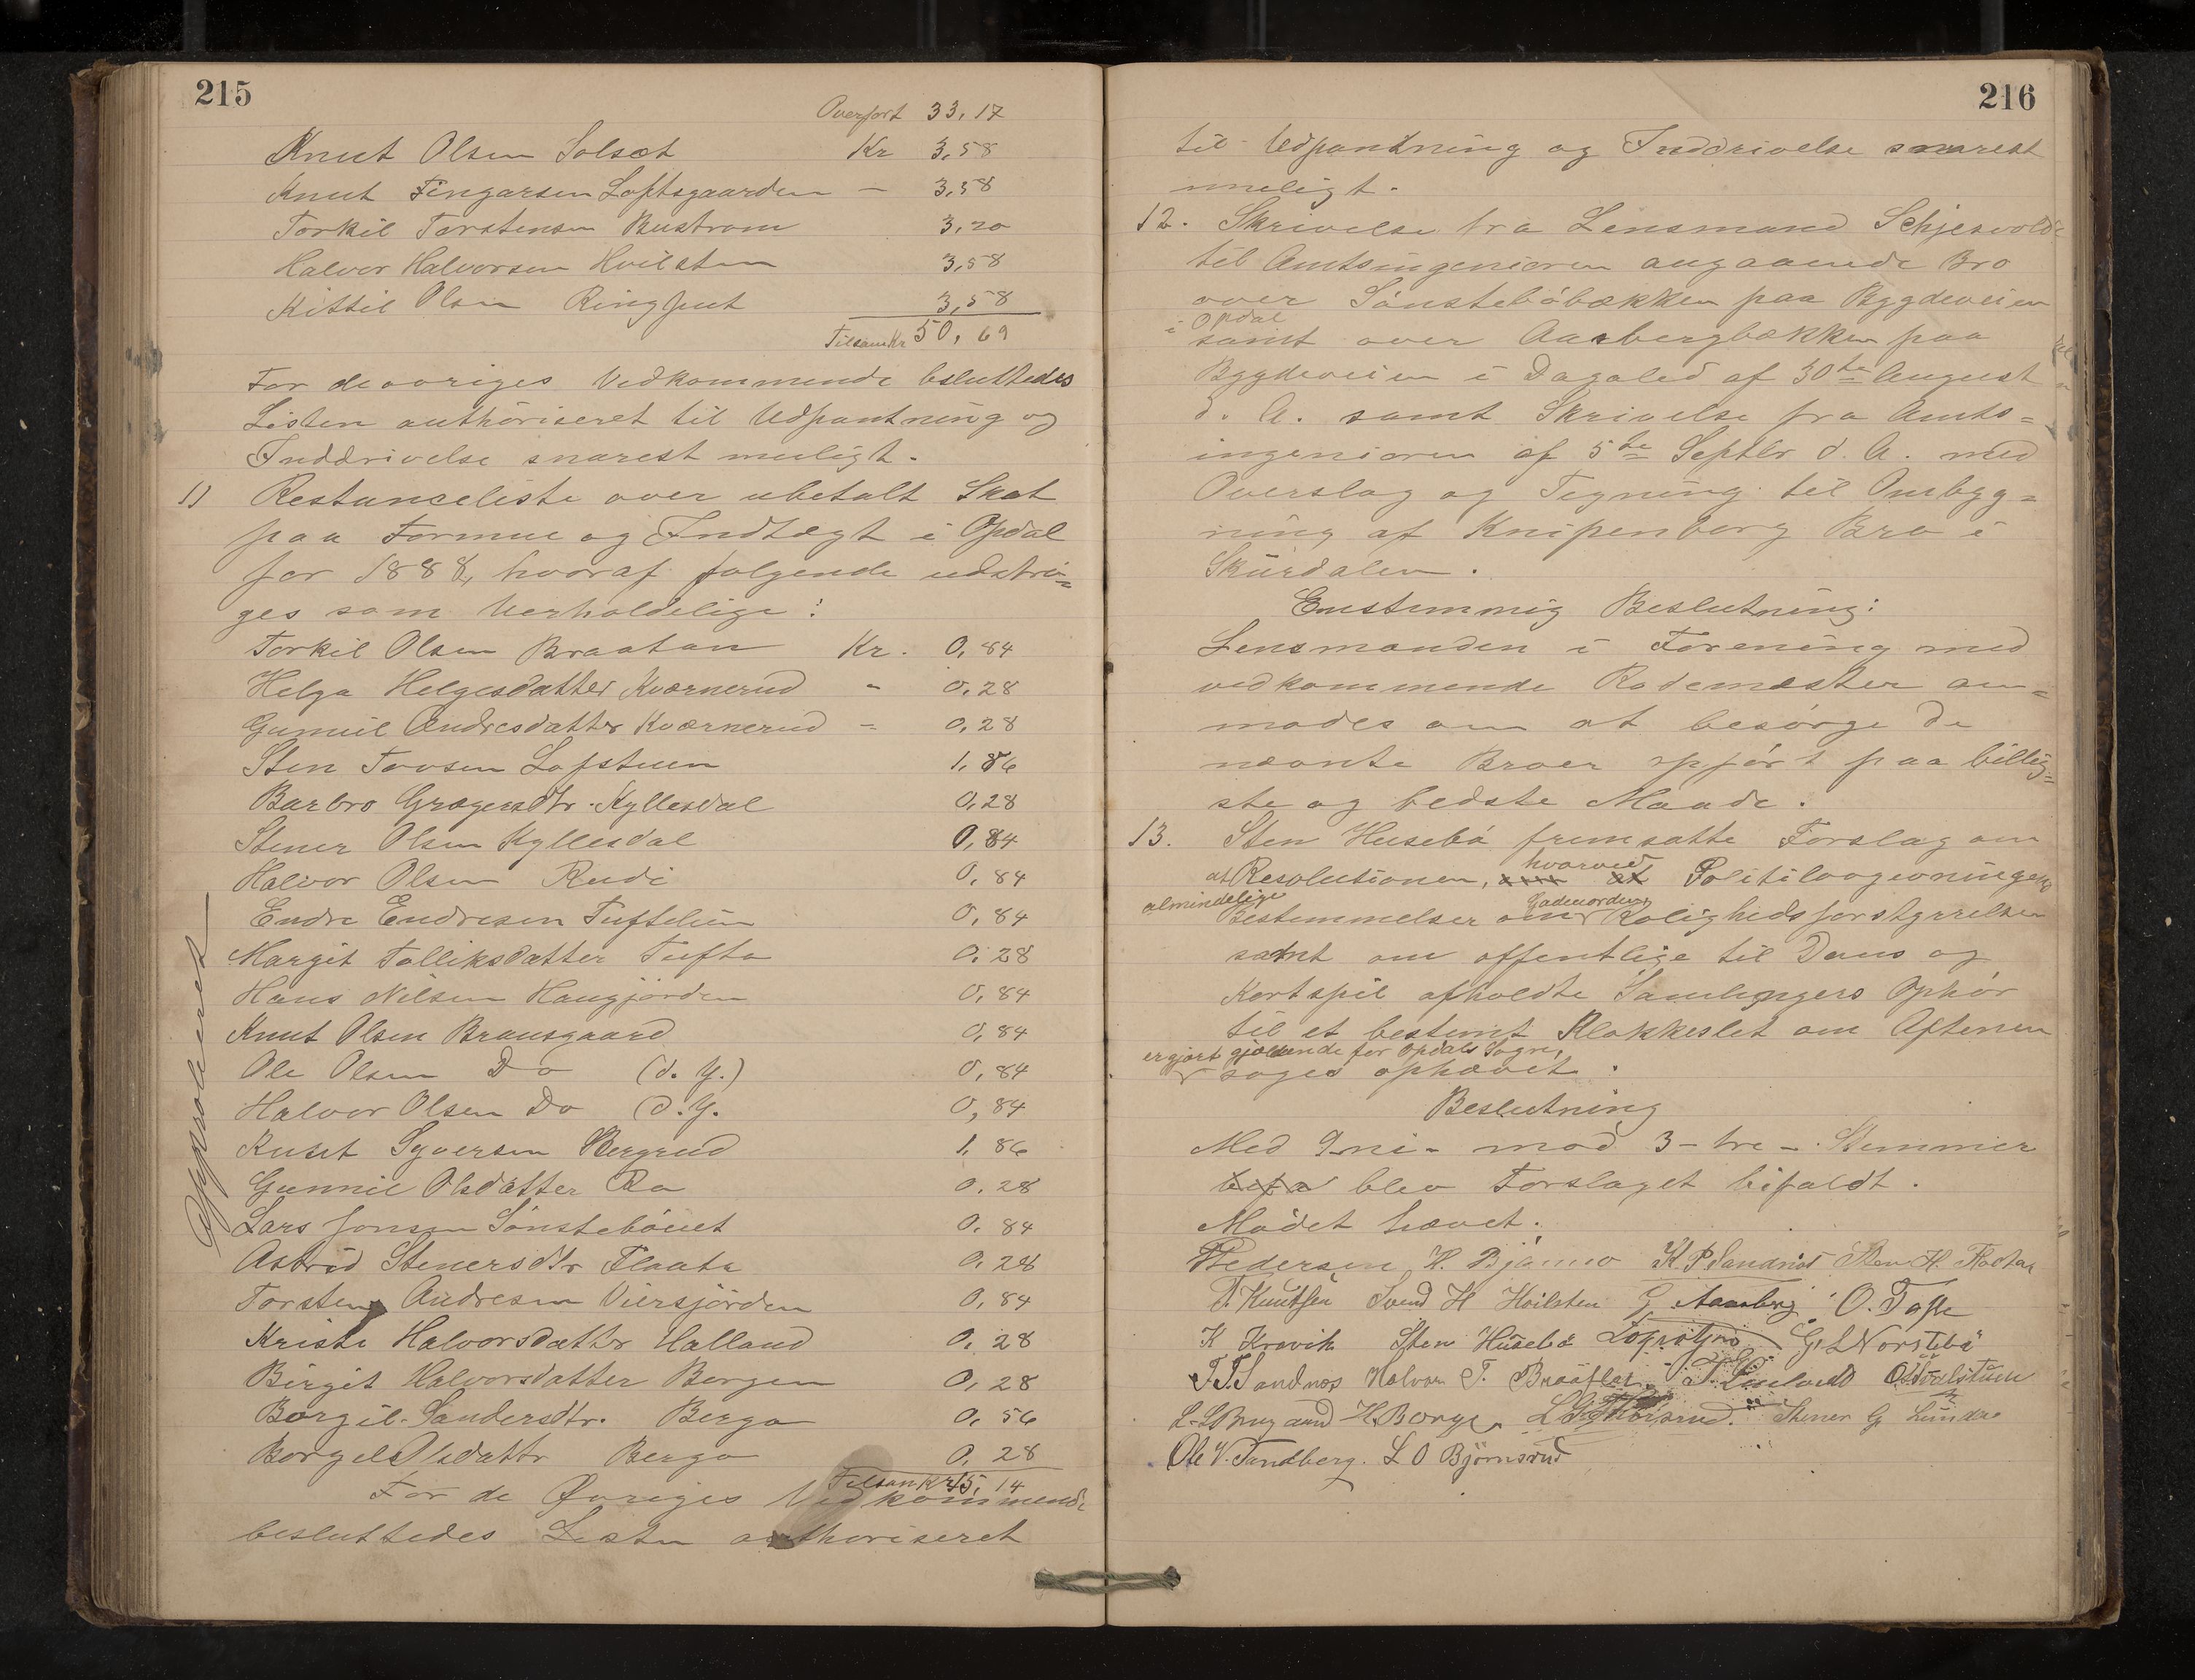 215
Overført 33,17
Knut Olsen Solsæt Kr 3,58
Knut Fingarsen Loftsgaarden - 3,58
Torkil Torstensen Bustrom 3,20
Halvor Halvorsen Hvilsten 3,58
Kittil Olsen Ringhus 3,58
Tilsam Kr 50,69
For de øvriges Vedkommende besluttedes
Listen authoriseret til Udpantning og
Inddrivelse snarest muligt.
11 Restanceliste over ubetalt Skat
paa Formue og Indtægt i Opdal
for 1888, hvoraf følgende udstry=
ges som Uerholdelige:
Torkil Olsen Braatan Kr. 0,84
Helga Helgesdatter Kværnerud " 0,28
Gunnil Andresdatter Kværnerud = 0,28
Sten Tovsen Lofstuen 1,86
Barbro Gregersdtr. Kyllesdal 0,28
Stener Olsen Kyllesdal 0,84
Halvor Olsen Rudi 0,84
Endre Endresen Tuftelien 0,84
Margit Folliksdatter Tufto 0,28
Hans Nilsen Haugjorden 0,84
Knut Olsen Brunsgaard 0,84
Ole Olsen Do (d. Y.) 0,84
Halvor Olsen Do (d. Y. 0,84
Knut Syversen Bergrud 1,86
Gunnil Olsdatter Ro 0.28
Lars Jonsen Sønstebøiet 0.84
Astrid Stenersdtr Flaata 0.28
Torsten Andresen Viersjorden 0.84
Kristi Halvorsdattr Halland 0.28
Birgit Halvorsdatter Bergen 0,28
Borgil. Sandersdtr. Berga 0,56
Borgel Olsdattr Berga 0.28
Tilsam Kr 15,14
For de Øvriges Vedkommende
besluttedes Listen authoriseret
Approberet
216
til Udpantning og Inddrivelse snarest
muligt.
12. Skrivelse fra Lensmand Schjesvolde
til Amtsingeniøren angaaende Bro
over Sønstebøbækken paa Bygdeveien
i Opdal
samt over Aasbergbækken paa
Bygdeveien i Dagaled af 30te August
d. A. samt Skrivelse fra Amts=
ingeniøren af 5te Septbr d. A. med
Overslag og Tegning til Ombyg=
ning af Knipenborg Bro i
Skurdalen.
Enstemmig Beslutning:
Lensmanden i Forening med
vedkommende Rodemester an=
modes om at besørge de
nævnte Broer opført paa billig=
ste og bedste Maade.
13. Sten Husebø fremsatte Forslag om
hvorved
at Resolutionen, om at Politilovgivningens
almindelige Gadeordens
Bestemmelser om Rolighedsforstyrrelser
samt om offentlige til Dans og
Kortspil afholdte Samlingers Ophør
til et bestemt Klokkeslet om Aftenen
er gjort gjældende for Opdals Sogn,
søges ophævet.
Beslutning
Med 9-ni- mod 3-tre- Stemmer
blev Forslaget bifaldt.
Mødet hævet.
Pedersen H. Bjønno K P Sandnæs Sten H.
T. Knutsen Svend H Hvilsten G Aasberg O. Tofte
K Kravik Sten Husebø G L Norstebø
T. T. Sandnæs Halvor T. Braaflat T.
L. L. Brugaard H. Borge Stener G Lundre
Ole V. Sandberg. L O Bjørnsrud